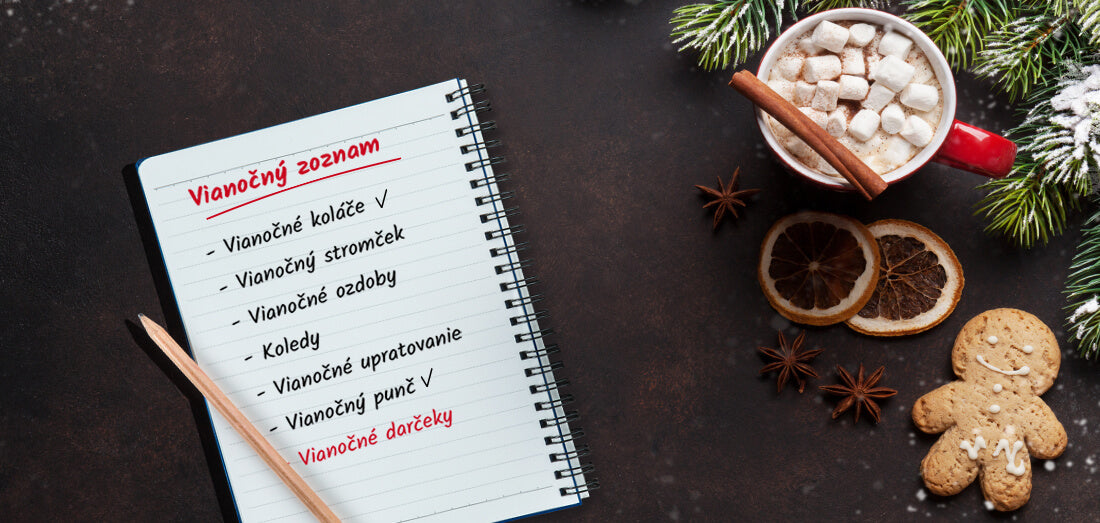 Vianočný zoznam
- Vianočné koláče ✓
- Vianočný stromček
- Vianočné ozdoby
- Koledy
- Vianočné upratovanie
- Vianočný punč ✓
Vianočné darčeky